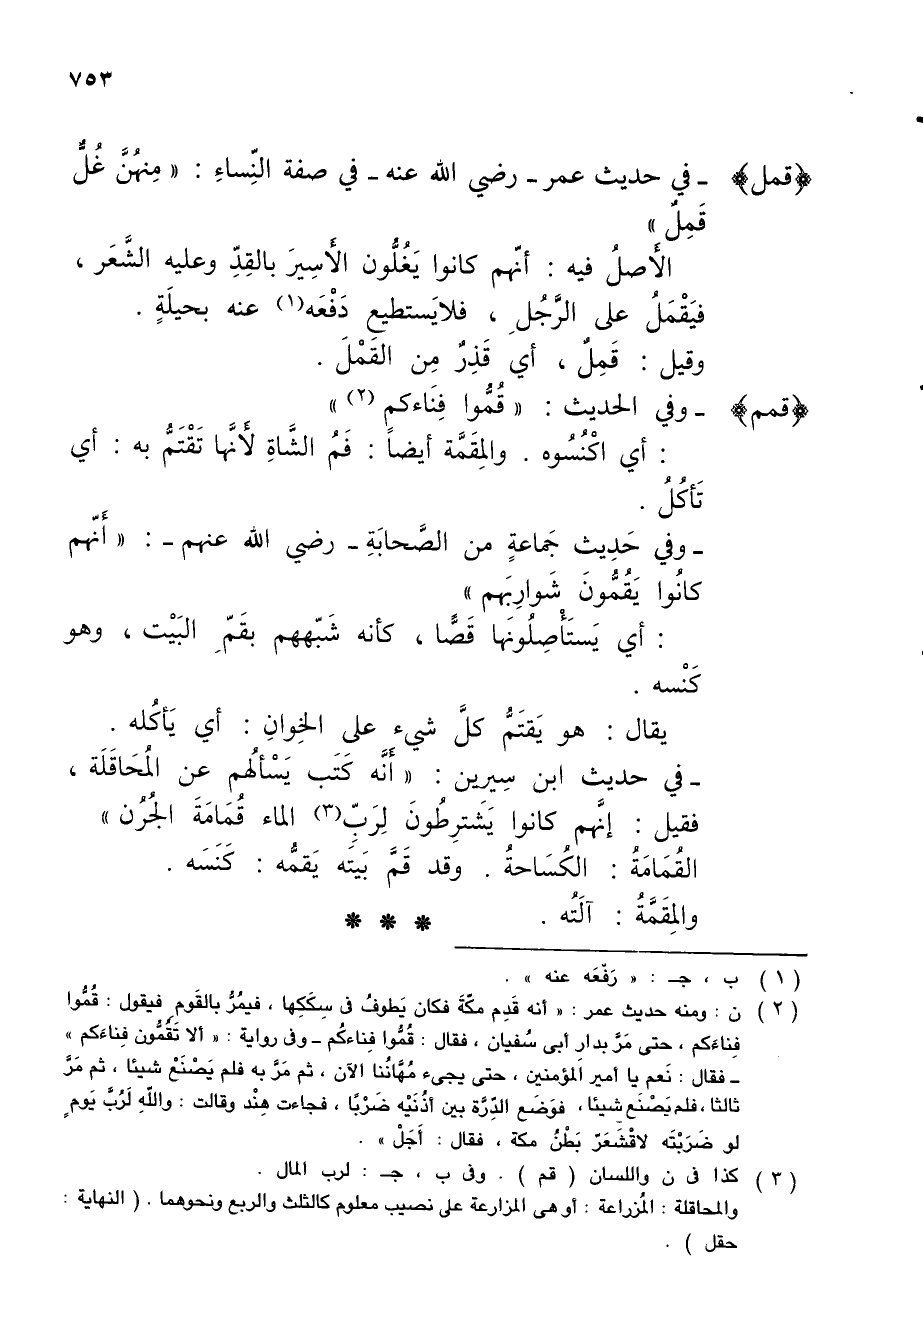 ٧٥٣
﴿قمل﴾ ـ في حديث عمر ـ رضي الله عنه ـ في صفة النِّساءِ : « مِنهُنَّ غُلٌّ
قَمِلٌ »
الأَصلُ فيه : أنّهم كانوا يَغُلُّون الأَسِيرَ بالقِدِّ وعليه الشَّعَر ،
فيَقْمَلُ على الرَّجُلِ ، فلايَستطيع دَفْعَه(١) عنه بحيلَةٍ .
وقيل : قَمِلٌ ، أي قَذِرٌ مِن القَمْلَ .
﴿قمم﴾ ـ وفي الحديث : « قُمُّوا فِنَاءكم (٢) »
: أي اكْنُسُوه . والمِقَمَّة أيضاً : فَمُ الشَّاةِ لأَنَّها تَقْتَمُّ به : أي
تَأكُلُ .
ـ وفي حَدِيث جَماعةٍ من الصَّحابَةِ ـ رضي الله عنهم ـ : « أَنّهم
كانُوا يَقُمُّونَ شَوارِبَهم »
: أي يَستَأْصِلُونَها قَصًّا ، كأنه شَبّههم بقَمّ البَيْت ، وهو
كَنْسه .
يقال : هو يَقتَمُّ كلَّ شيء على الخِوانِ : أي يَأكُله .
ـ في حديث ابن سِيرين : « أَنَّه كَتَب يَسْألُهم عن المُحَاقَلَة ،
فقيل : إنَّهم كانوا يَشترِطُونَ لِرَبّ(٣) الماء قُمَامَةَ الجُرُن »
القُمَامَةُ : الكُسَاحةُ . وقد قَمَّ بَيتَه يَقمُّه : كَنَسَه .
والمِقَمَّةُ : آلَتُه . * * *
(١) ب ، جـ : « رَفْعَه عنه » .
(٢) ن : ومنه حديث عمر : « أنه قَدِم مكّةَ فكان يَطوفُ فى سِكَكِها ، فيمُرُّ بالقَوم فيقول : قُمُّوا
فِناءَكم ، حتى مَرَّ بدار أبى سُفيان ، فقال : قُمُّوا فِناءكُم ـ وفى رواية : « ألا تَقُمُّون فِناءَكم »
ـ فقال : نَعم يا أمير المؤمنين ، حتى يجىء مُهَّانُنا الآن ، ثم مَرَّ به فلم يَصْنَع شيئا ، ثم مَرَّ
ثالثا ، فلم يَصْنَع شيئا ، فوَضَع الدِّرَّة بين أُذُنَيْه ضَرْبًا ، فجاءت هِند وقالت : واللّهِ لَرُبَّ يَومٍ
لو ضَرَبْتَه لاقْشَعَرّ بَطْنُ مكة ، فقال : أَجَلْ » .
(٣) كذا فى ن واللسان ( قم ) . وفى ب ، جـ : لرب المال .
والمحاقلة : المُزراعة : أو هى المزارعة على نصيب معلوم كالثلث والربع ونحوهما . ( النهاية :
حقل ) .